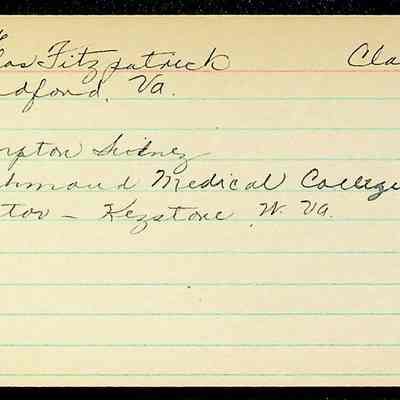 Fitzpatrick Cla
dford, Va.
Sidney
hmond Medical College
tor - Keystone W. Va.